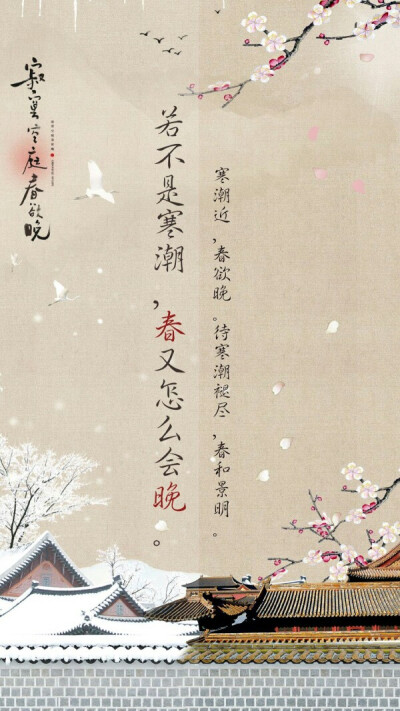 寒潮近，春欲晚。待寒潮褪尽，春和景明。
若不是寒潮，春又怎么会晚。
寂寞空庭春欲晚